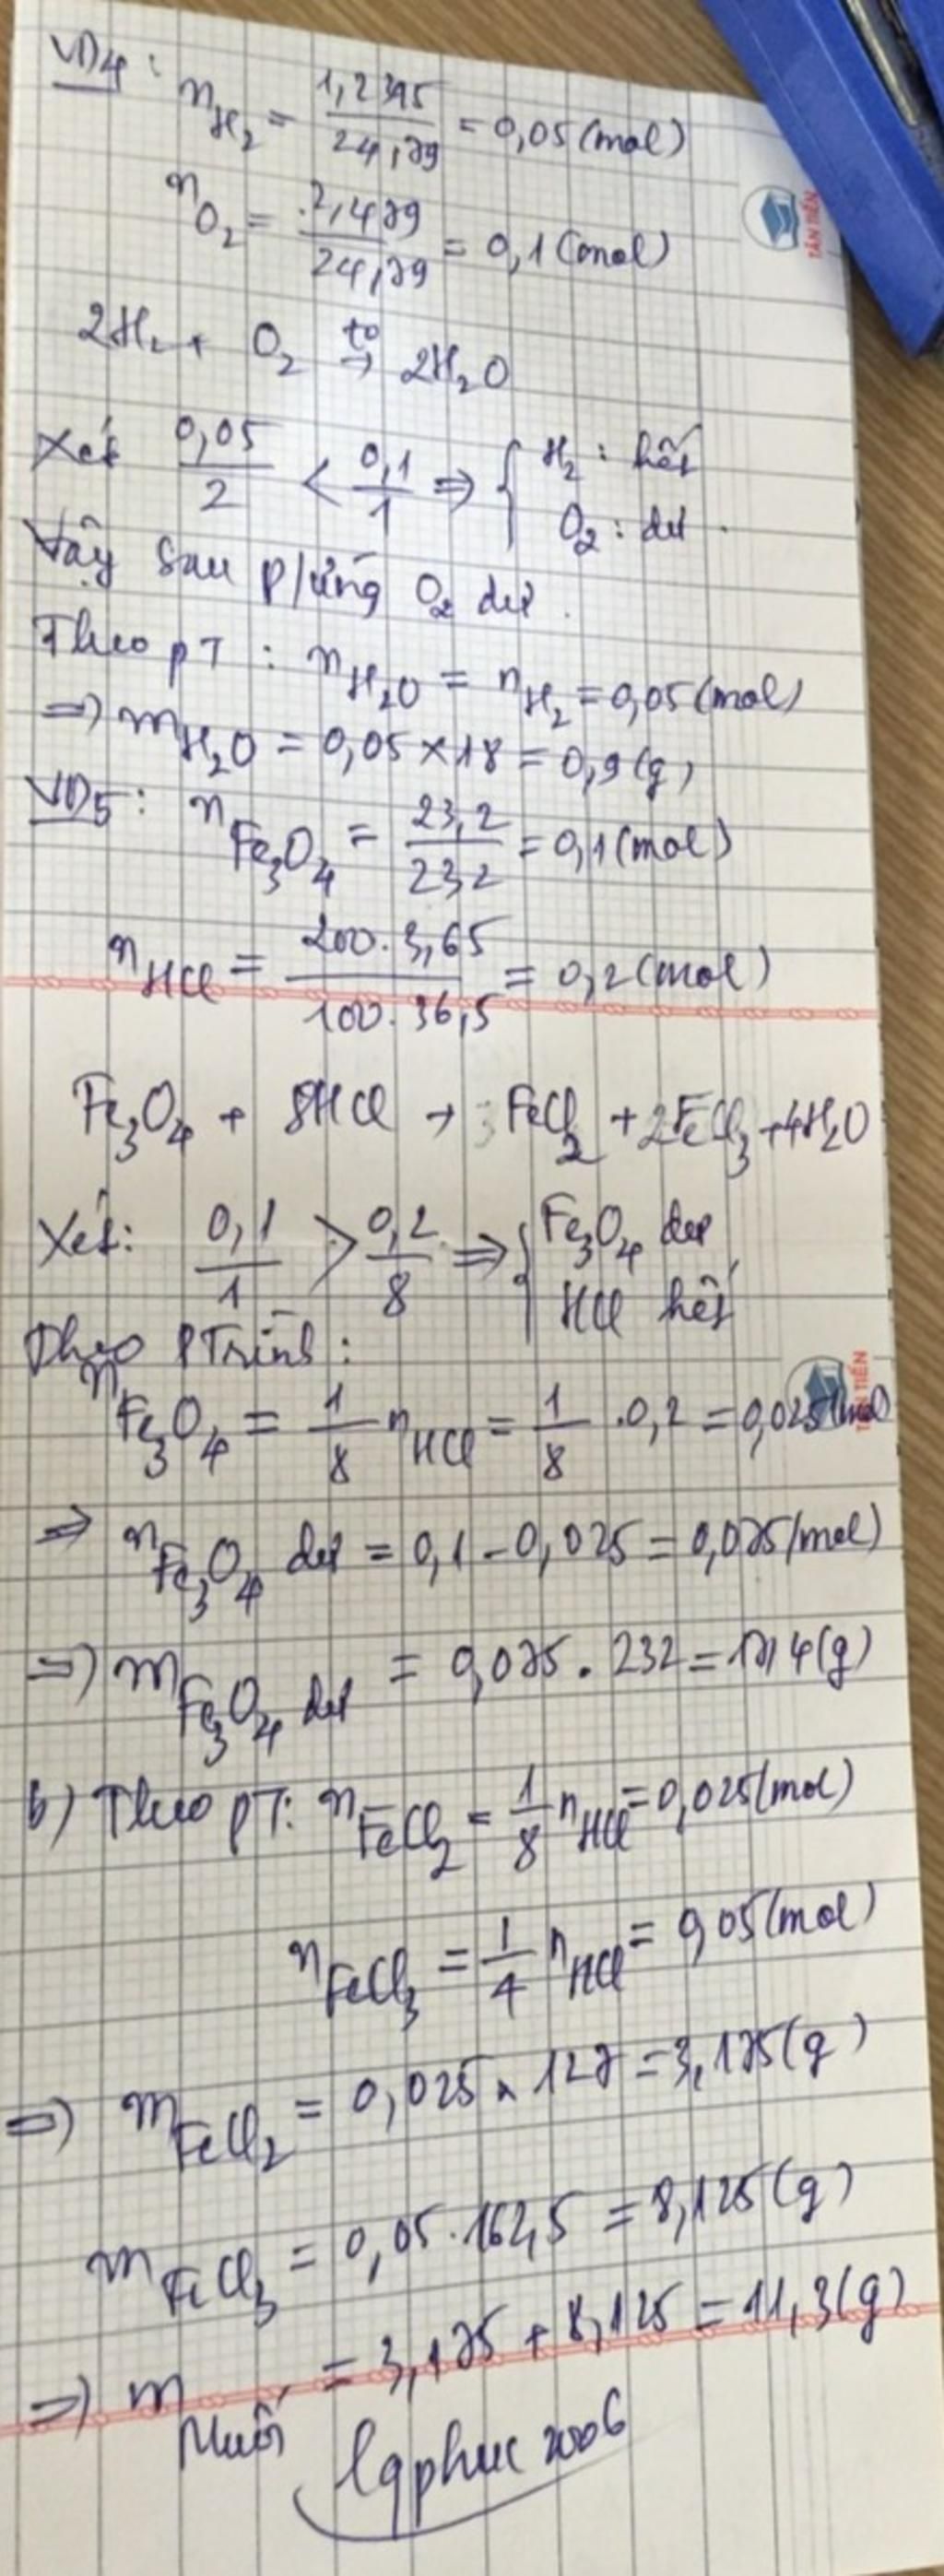 VD4 : n_H₂ = 1,2395/24,79 = 0,05 (mol)
n_O₂ = 2,479/24,79 = 0,1 (mol)
TÂN TIẾN
2H₂ + O₂ t° → 2H₂O
Xét 0,05/2 < 0,1/1 ⇒ { H₂ : hết
O₂ : dư .
Vậy sau p/ứng O₂ dư .
Theo pT : n_H₂O = n_H₂ = 0,05 (mol)
⇒ m_H₂O = 0,05 × 18 = 0,9 (g)
VD5 : n_Fe₃O₄ = 23,2/232 = 0,1 (mol)
n_HCl = 200.3,65/100.36,5 = 0,2 (mol)
Fe₃O₄ + 8HCl → FeCl₂ + 2FeCl₃ + 4H₂O
Xét : 0,1/1 > 0,2/8 ⇒ { Fe₃O₄ dư
HCl hết
Theo PTrình :
TÂN TIẾN
n_Fe₃O₄ = 1/8 n_HCl = 1/8 .0,2 = 0,025 (mol)
⇒ n_Fe₃O₄ dư = 0,1 - 0,025 = 0,075 (mol)
⇒ m_Fe₃O₄ dư = 0,075 . 232 = 17,4 (g)
b) Theo pT: n_FeCl₂ = 1/8 n_HCl = 0,025 (mol)
n_FeCl₃ = 1/4 n_HCl = 0,05 (mol)
⇒ m_FeCl₂ = 0,025 × 127 = 3,175 (g)
m_FeCl₃ = 0,05.162,5 = 8,125 (g)
⇒ m_Muối = 3,175 + 8,125 = 11,3 (g)
lqphuc2006